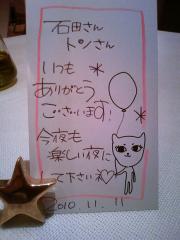 石田さん
トンさん
いつも
ありがとう
ございます!
今夜も
楽しい夜に
して下さいネ♡
2010.11.11